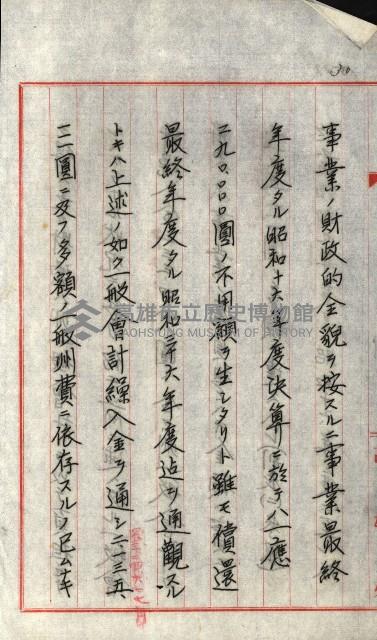 事業ノ財政的全貌ヲ按スルニ事業最終
年度タル昭和十六年度決算ニ於テハ一應
二九〇、〇〇〇圓ノ不用額ヲ生シタリト雖モ償還
最終年度タル昭和三十六年度迄ヲ通觀スル
トキハ上述ノ如ク一般會計繰入金ヲ通シ二一三五
三一圓ニ及フ多額ノ一般州費ニ依存スルノ已ムナキ
高雄市立歷史博物館
KAOHSIUNG MUSEUM OF HISTORY